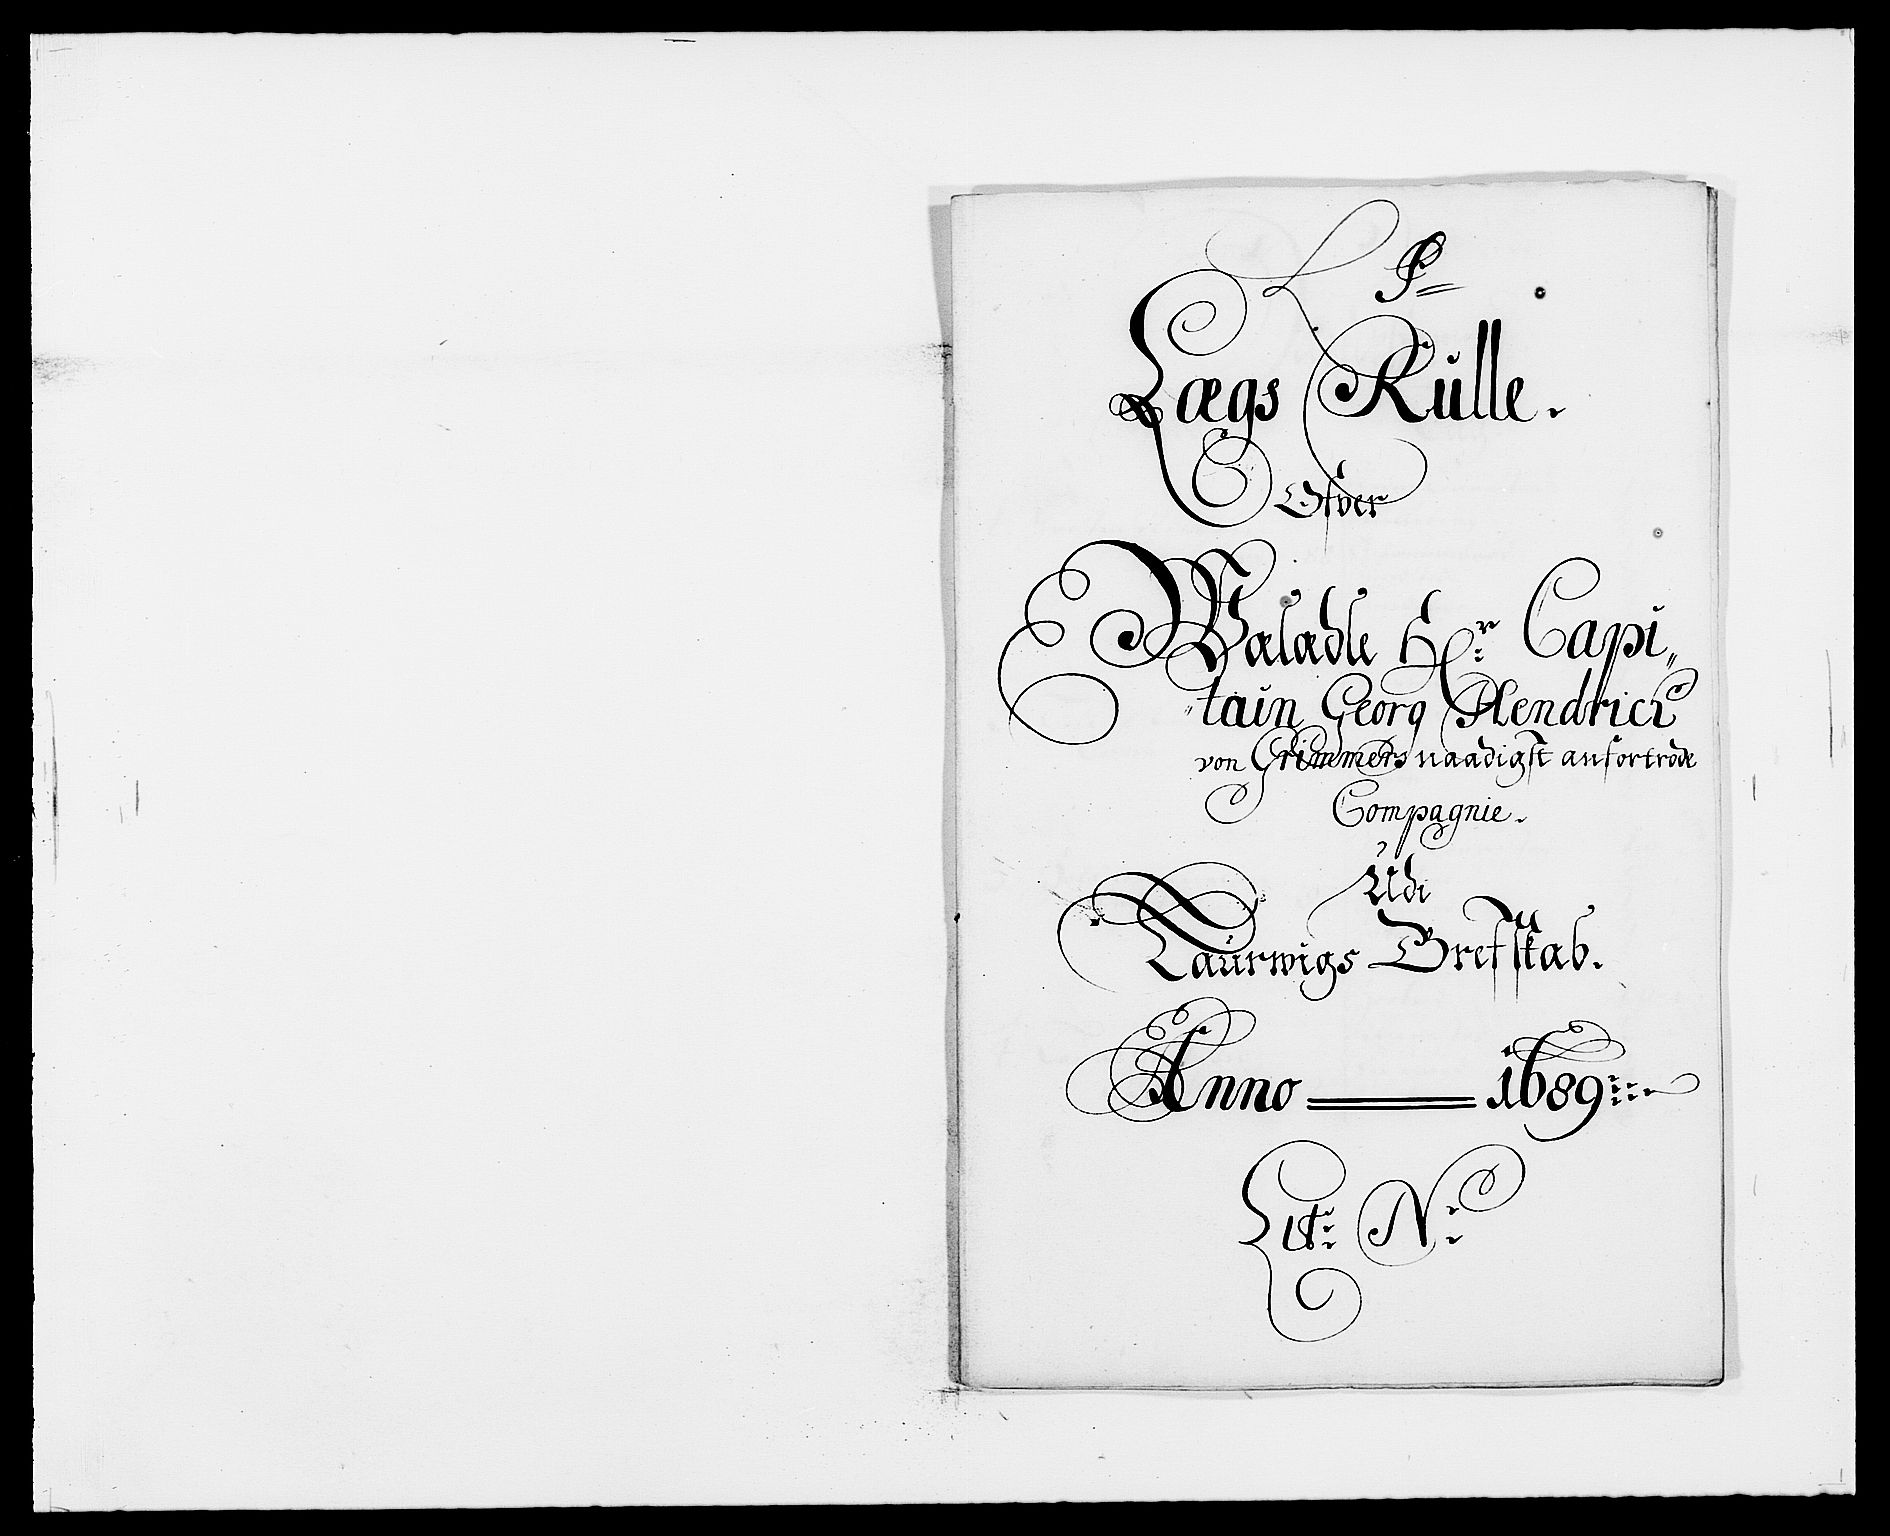 P
Lægs Rulle.
Ofver
Wælædle Hr: Capi„
„tain Georg Hendrich
von Grimmers naadigst anfortrode
Compagnie.
Udi
Laurwigs Grefskab.
Anno 1689
Lit: N: